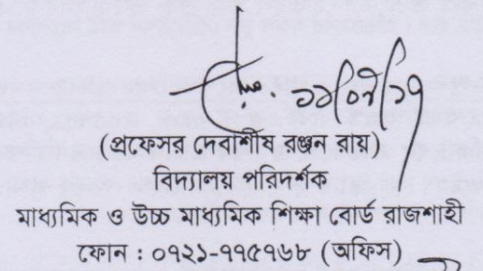 ১১/০৭/১৭
(প্রফেসর দেবাশীষ রঞ্জন রায়)
বিদ্যালয় পরিদর্শক
মাধ্যমিক ও উচ্চ মাধ্যমিক শিক্ষা বোর্ড রাজশাহী
ফোন : ০৭২১-৭৭৫৭৬৮ (অফিস)